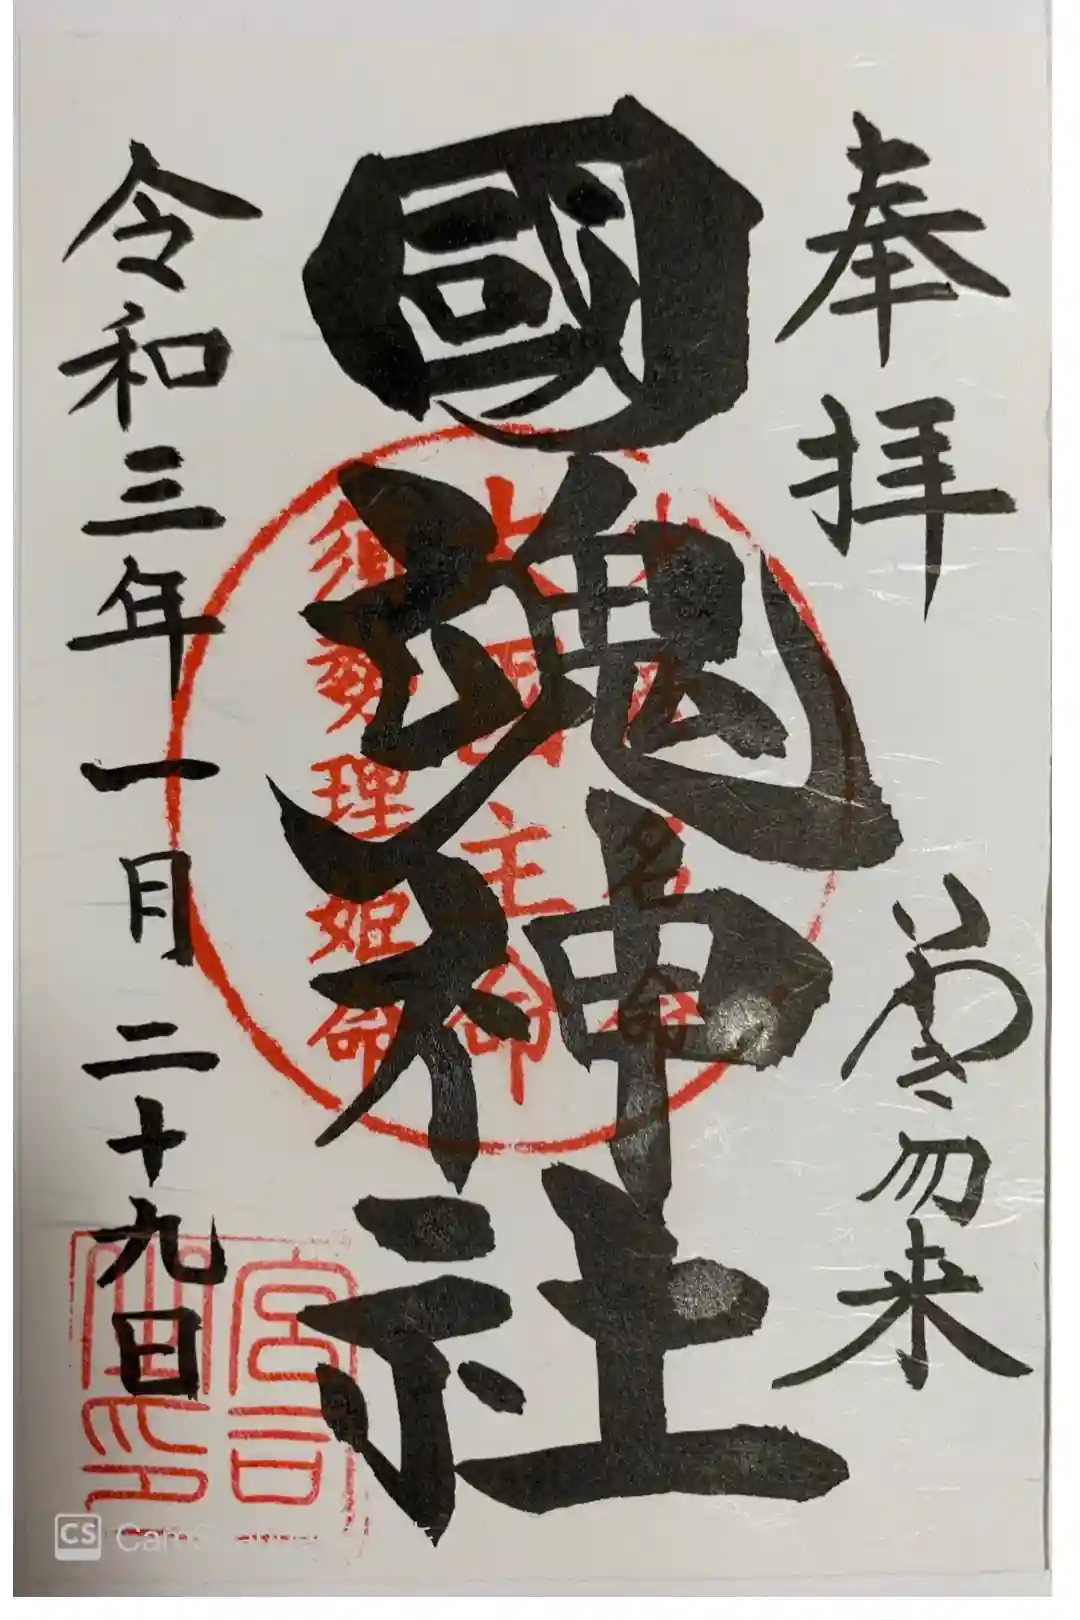 奉拝
いわき勿来
國魂神社
令和三年一月二十九日
大国主命
須勢理姫命
宮司之印
CS